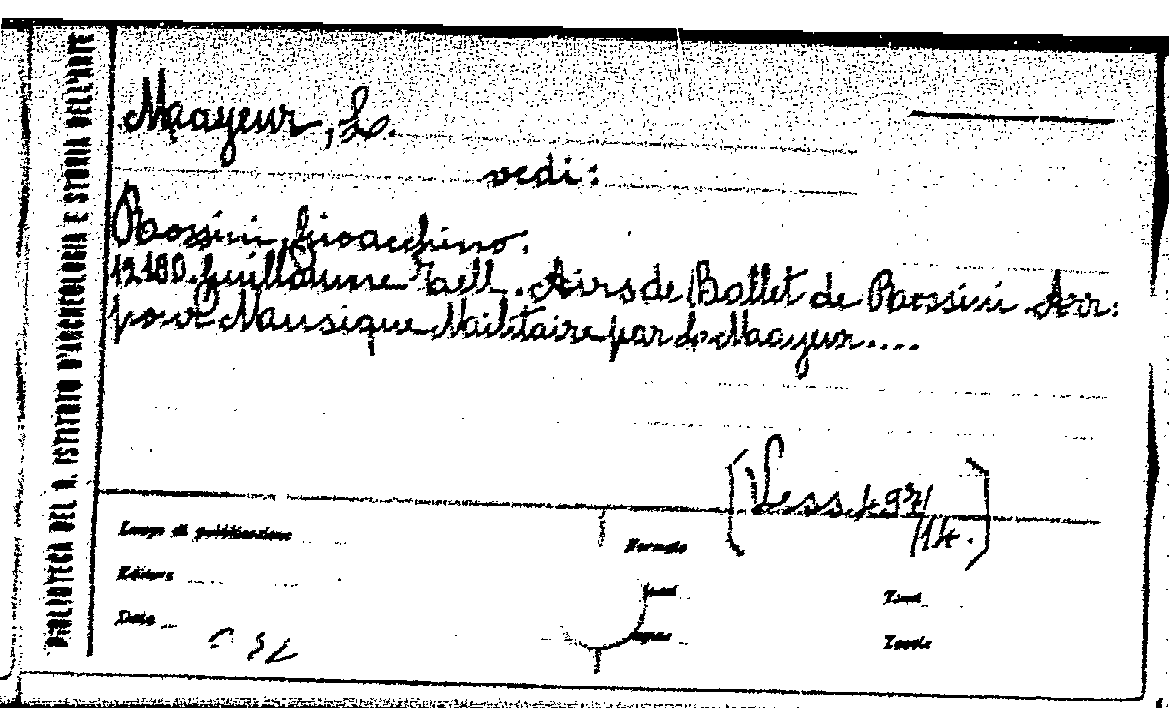 BIBLIOTECA DEL R. ISTITUTO D'ARCHEOLOGIA E STORIA DELL'ARTE
Maayeur, L.
vedi:
Rossini, Gioacchino.
12180. Guillaume Tell. Airs de Ballet de Rossini Arr.
pour Mausique Militaire par L. Maayeur....
Luogo di pubblicazione
Formato
Editore
Data
Tomi
Tavole